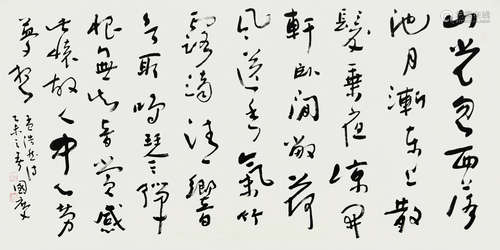 山光忽西落
池月漸東上散
髮乘夜涼開
軒臥閒敞荷
風送香氣竹
露滴清響
欲取鳴琴彈
恨無知音賞感
此懷故人中勞
夢想
孟浩然詩
乙未之春國慶